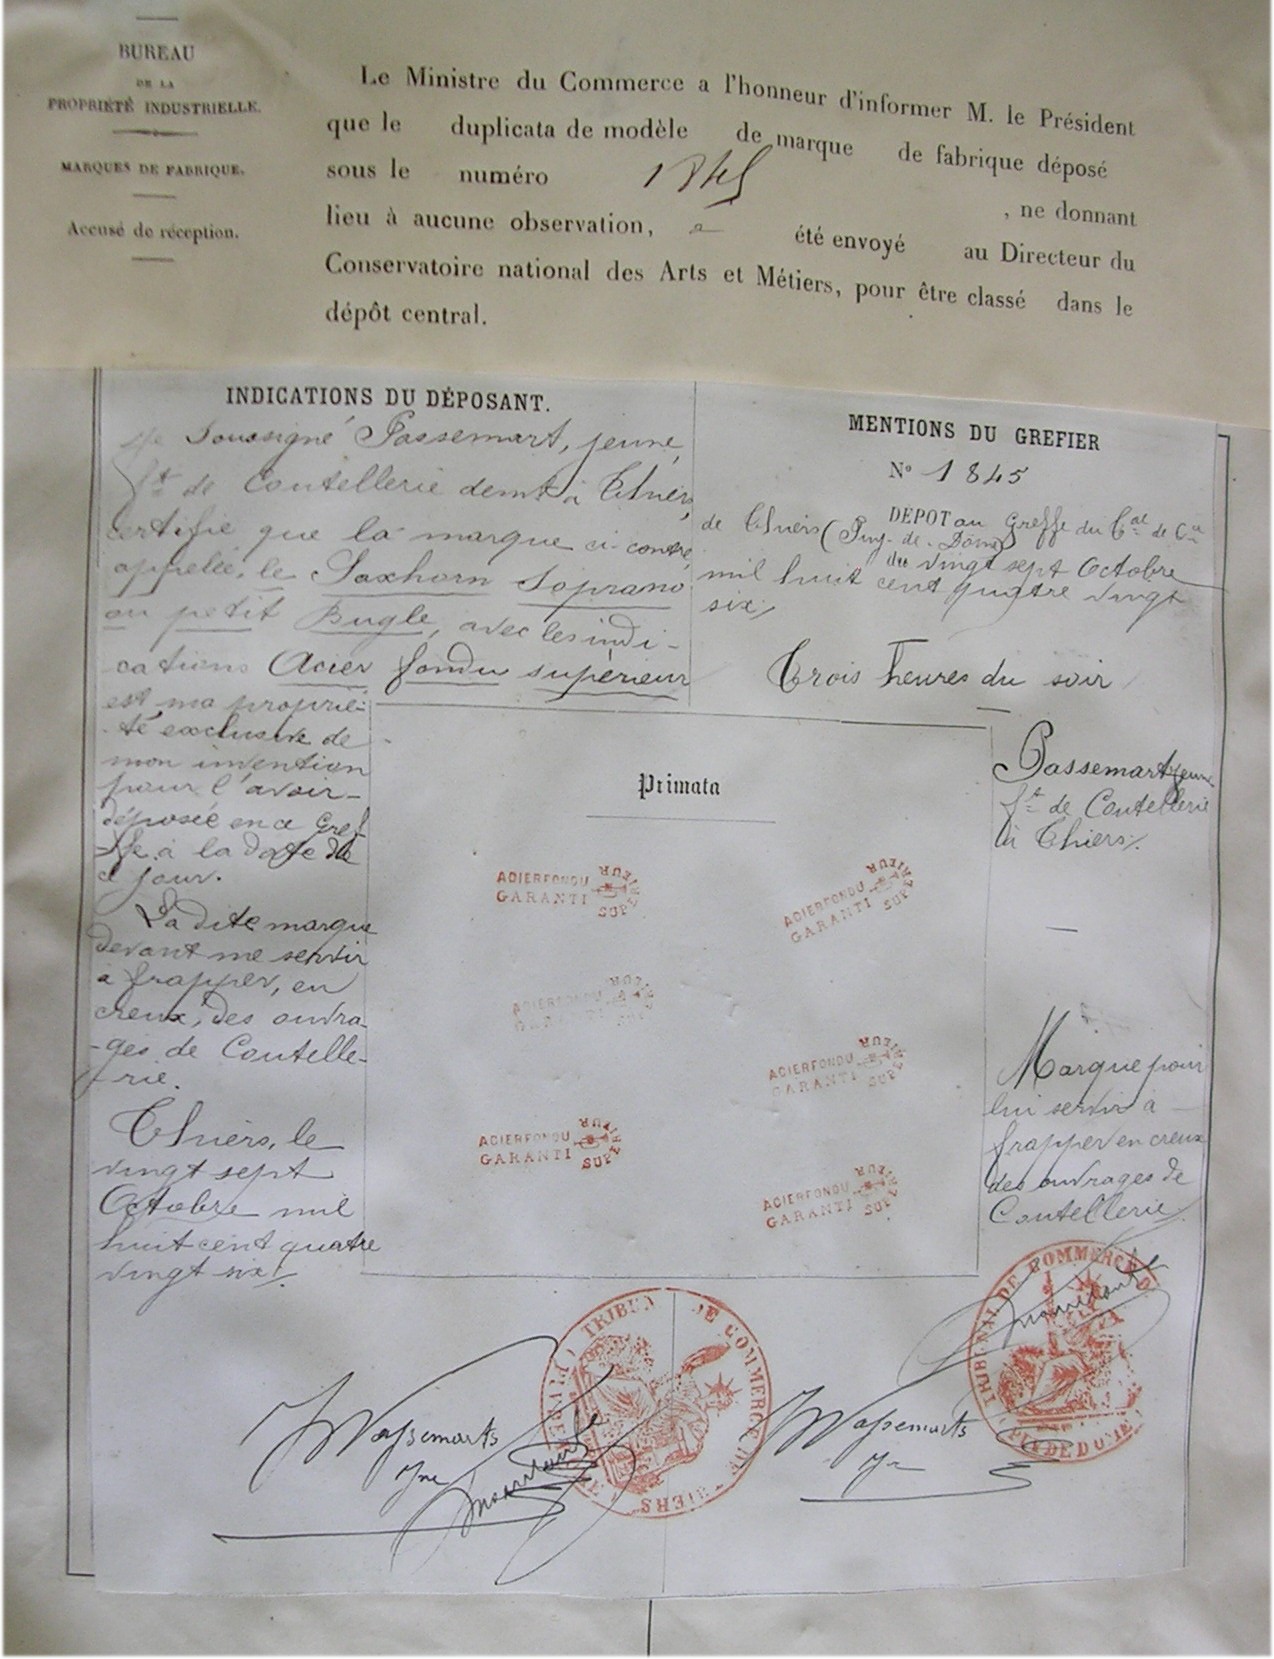 BUREAU
DE LA
PROPRIÉTÉ INDUSTRIELLE.
MARQUES DE FABRIQUE.
Accusé de réception.
Le Ministre du Commerce a l'honneur d'informer M. le Président
que le duplicata de modèle de marque de fabrique déposé
sous le numéro 1845
, ne donnant
lieu à aucune observation, a été envoyé au Directeur du
Conservatoire national des Arts et Métiers, pour être classé dans le
dépôt central.
INDICATIONS DU DÉPOSANT.
Je Soussigné Passemart, jeune,
ft de Coutellerie demt à Thiers,
certifie que la marque ci-contre,
appelée, le Saxhorn Soprano
ou petit Bugle, avec les indi-
cations Acier fondu supérieur
est ma proprié-
-té exclusive de
mon invention
pour l'avoir-
déposée en ce Gref-
ffe à la date de
ce jour.
La dite marque
devant me servir
à frapper, en
creux, des ouvra-
-ges de Coutelle-
-rie.
Thiers, le
vingt sept
Octobre mil
huit cent quatre
vingt six.
MENTIONS DU GREFIER
N° 1845
DÉPOT au Greffe du Cal de Cce
de Thiers (Puy-de-Dôme)
du vingt sept Octobre
mil huit cent quatre vingt
six,
Trois heures du soir
Passemart jeune
ft de Coutellerie
à Thiers.
Marque pour
lui servir à
frapper en creux
des ouvrages de
Coutellerie
Primata
ACIER FONDU
GARANTI
SUPERIEUR
ACIER FONDU
GARANTI
SUPERIEUR
ACIER FONDU
GARANTI
SUPERIEUR
ACIER FONDU
GARANTI
SUPERIEUR
ACIER FONDU
GARANTI
SUPERIEUR
ACIER FONDU
GARANTI
SUPERIEUR
Passemart
Jne
TRIBUNAL DE COMMERCE DE THIERS
Passemart
Jne
TRIBUNAL DE COMMERCE D
PUY DE DOME